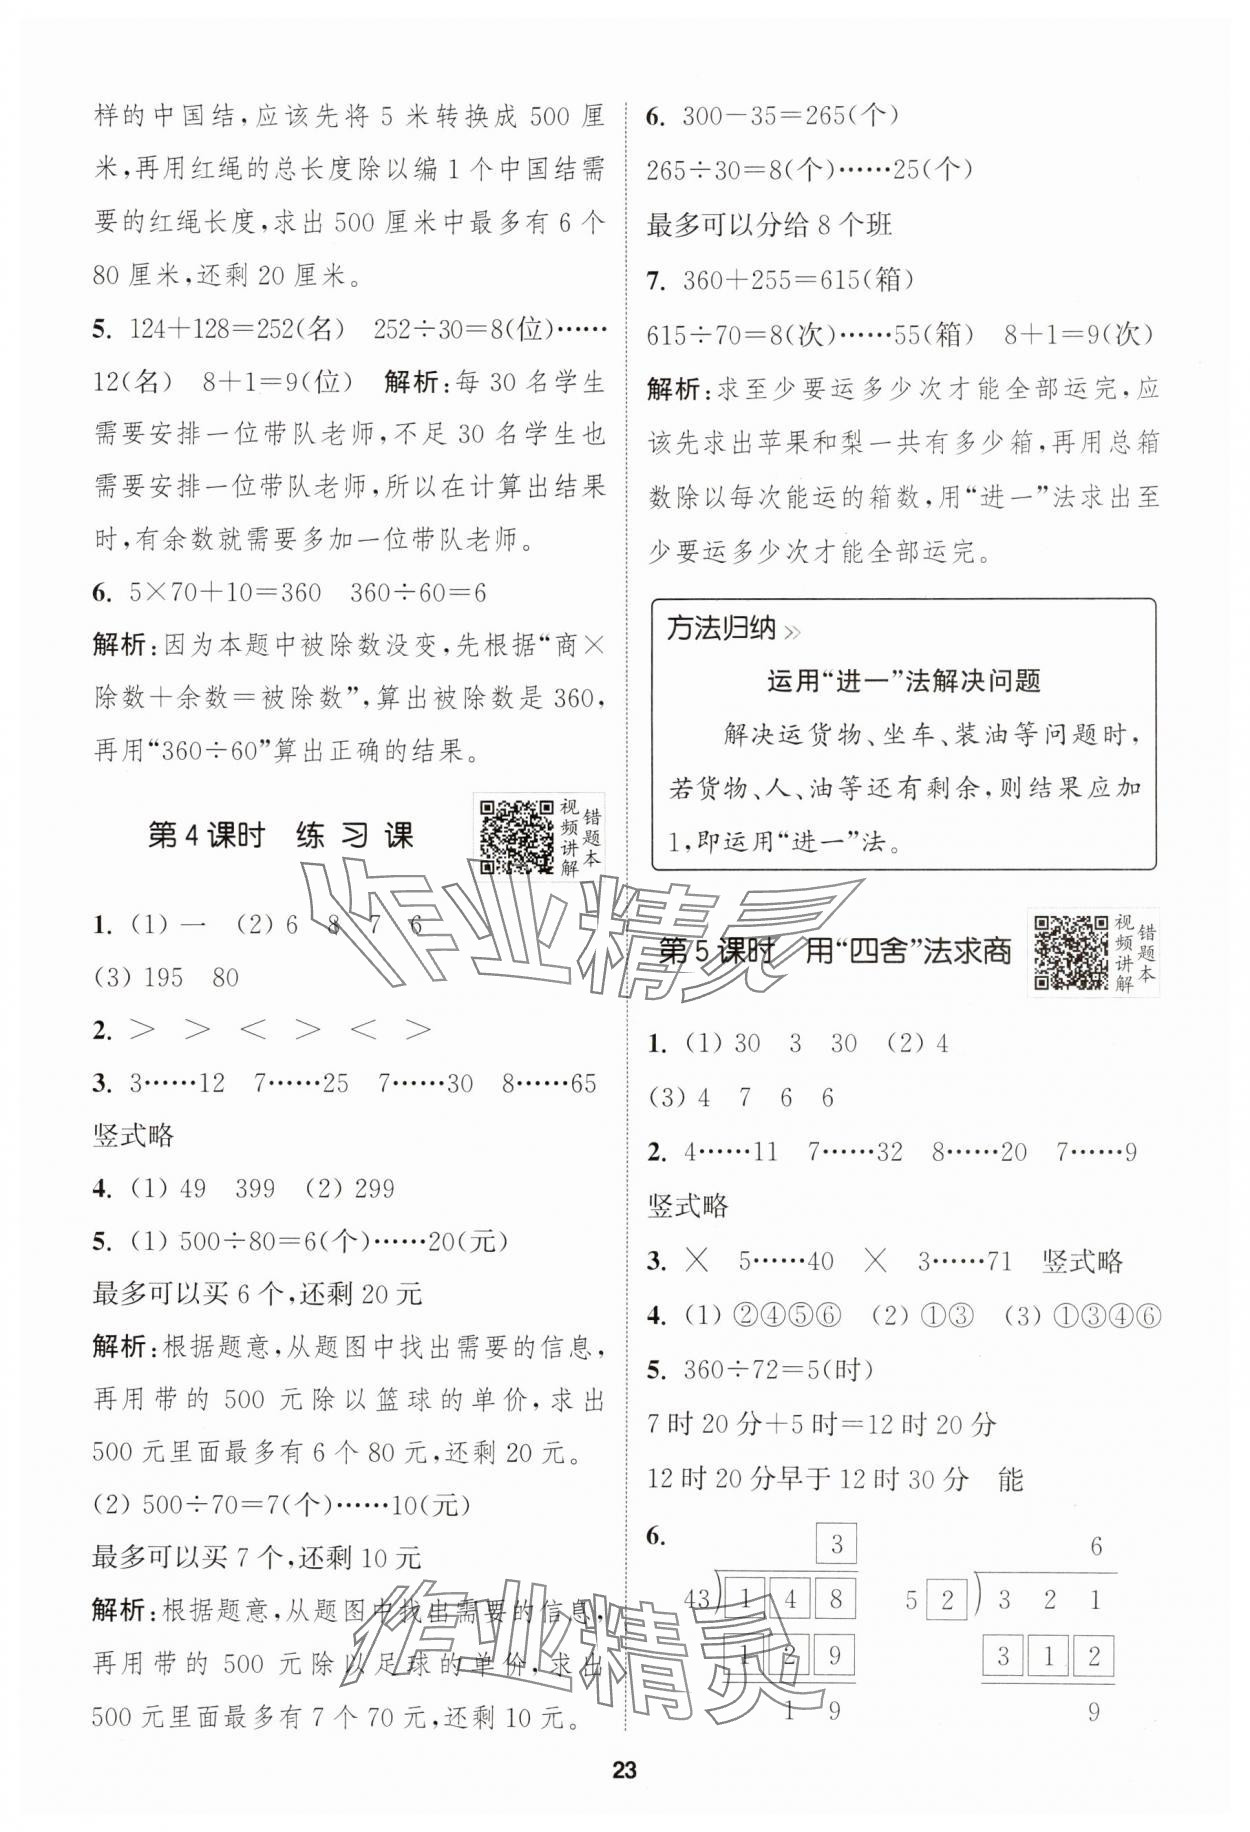 样的中国结,应该先将 5 米转换成 500 厘
米,再用红绳的总长度除以编 1 个中国结需
要的红绳长度,求出 500 厘米中最多有 6 个
80 厘米,还剩 20 厘米。
5. 124+128=252(名) 252÷30=8(位)……
12(名) 8+1=9(位) 解析:每 30 名学生
需要安排一位带队老师,不足 30 名学生也
需要安排一位带队老师,所以在计算出结果
时,有余数就需要多加一位带队老师。
6. 5×70+10=360 360÷60=6
解析:因为本题中被除数没变,先根据“商×
除数+余数=被除数”,算出被除数是 360,
再用“360÷60”算出正确的结果。
第 4 课时 练 习 课
视频讲解
错题本
1. (1) 一 (2) 6 8 7 6
(3) 195 80
2. > > < > < >
3. 3……12 7……25 7……30 8……65
竖式略
4. (1) 49 399 (2) 299
5. (1) 500÷80=6(个)……20(元)
最多可以买 6 个,还剩 20 元
解析:根据题意,从题图中找出需要的信息,
再用带的 500 元除以篮球的单价,求出
500 元里面最多有 6 个 80 元,还剩 20 元。
(2) 500÷70=7(个)……10(元)
最多可以买 7 个,还剩 10 元
解析:根据题意,从题图中找出需要的信息,
再用带的 500 元除以足球的单价,求出
500 元里面最多有 7 个 70 元,还剩 10 元。
6. 300-35=265(个)
265÷30=8(个)……25(个)
最多可以分给 8 个班
7. 360+255=615(箱)
615÷70=8(次)……55(箱) 8+1=9(次)
解析:求至少要运多少次才能全部运完,应
该先求出苹果和梨一共有多少箱,再用总箱
数除以每次能运的箱数,用“进一”法求出至
少要运多少次才能全部运完。
方法归纳
运用“进一”法解决问题
解决运货物、坐车、装油等问题时,
若货物、人、油等还有剩余,则结果应加
1,即运用“进一”法。
第 5 课时 用“四舍”法求商
视频讲解
错题本
1. (1) 30 3 30 (2) 4
(3) 4 7 6 6
2. 4……11 7……32 8……20 7……9
竖式略
3. × 5……40 × 3……71 竖式略
4. (1) ②④⑤⑥ (2) ①③ (3) ①③④⑥
5. 360÷72=5(时)
7 时 20 分+5 时=12 时 20 分
12 时 20 分早于 12 时 30 分 能
6. 3 6
43 1 4 8 5 2 3 2 1
1 2 9 3 1 2
1 9 9
23
作业精灵
作业精灵